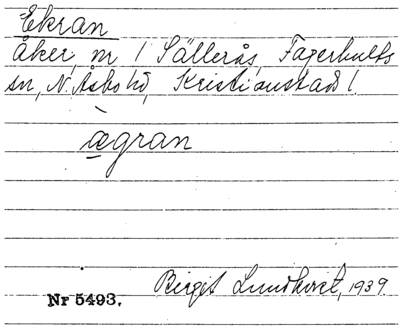 Ekran
Åker, nr 1 Sällerås, Fagerhults
sn, N. Åsbo hd, Kristianstads l.
ægran
Birgit Lundkvist, 1939.
Nr 5493.